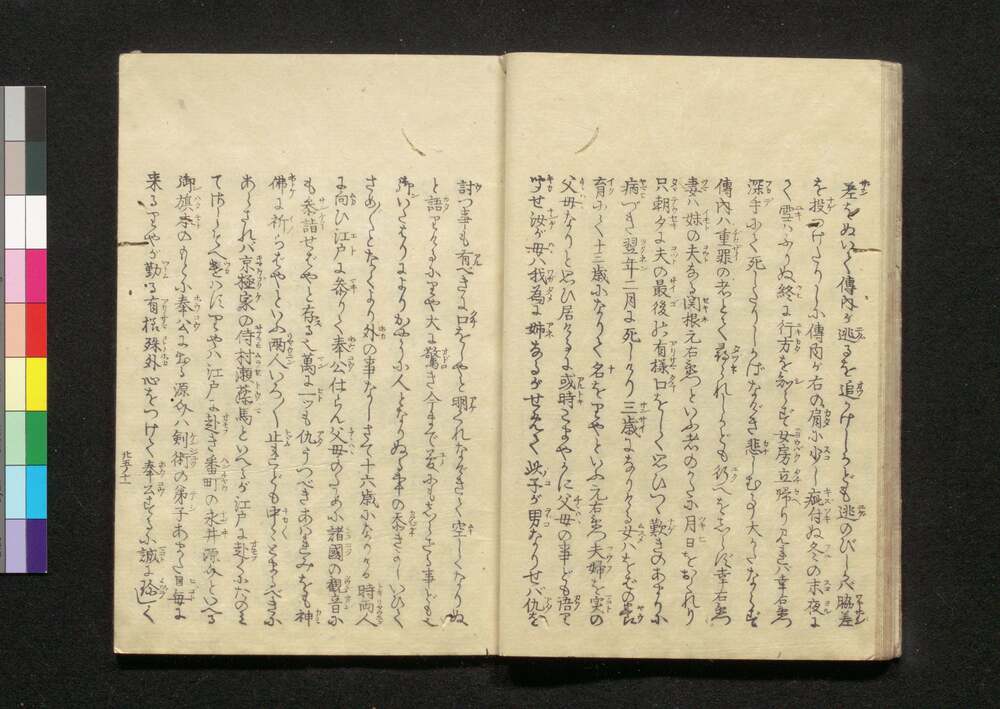 差をぬいて傳内が逃るを追かけしかども逃のびしバ脇差
を投つけたりしに傳内が右の肩に少し疵付ぬ冬の末夜に
て雪ハふりぬ終に行方を知らず女房立帰り見れバ幸右衛門
深手にて死したりしかばなげき悲しむ事大かたならず
傳内ハ重罪の者とて尋られしかども行へをしらず幸右衛門
妻ハ妹の夫なる関根元右衛門といふ者のかたに月日をおくれり
只朝夕に夫の最後の有様口をしく思ひつゝ歎きのあまりに
病づき翌年二月に死しけり三歳になりける女ハをぢの養
育にて十三歳になりて名をりやといふ元右衛門夫婦を実の
父母なりと思ひ居るに或時こまやかに父母の事ども語て
けせ汝が母ハ我為に姉なるがせめて此子が男なりせバ仇を
討つ事も有べきに口をしやと明くれなげきて空しくなりぬ
と語りけるにりや大に驚き今まで夢にもしらざる事ども
御いたはりによりかやうに人となりぬる事の忝さよといひて
さめ〴〵となくより外の事なしさて十六歳になりける時両人
に向ひ江戸に参りて奉公仕らん父母のために諸國の観音に
も参詣せばやと存る也萬に一ツも仇うつべきあはれみをも神
佛に祈らばやといふ両人いろ〳〵止れども中々とまるべきに
あらされバ京極家の侍村瀬藤馬といへるが江戸に赴くにたのみ
てけしてつかハすにりやハ江戸に赴き番町の永井源介といへる
御旗本のもとに奉公に出る源介ハ剣術の弟子あまた日毎に
来るりやが勤る有様殊外心をつけて奉公するに誠に珍しく